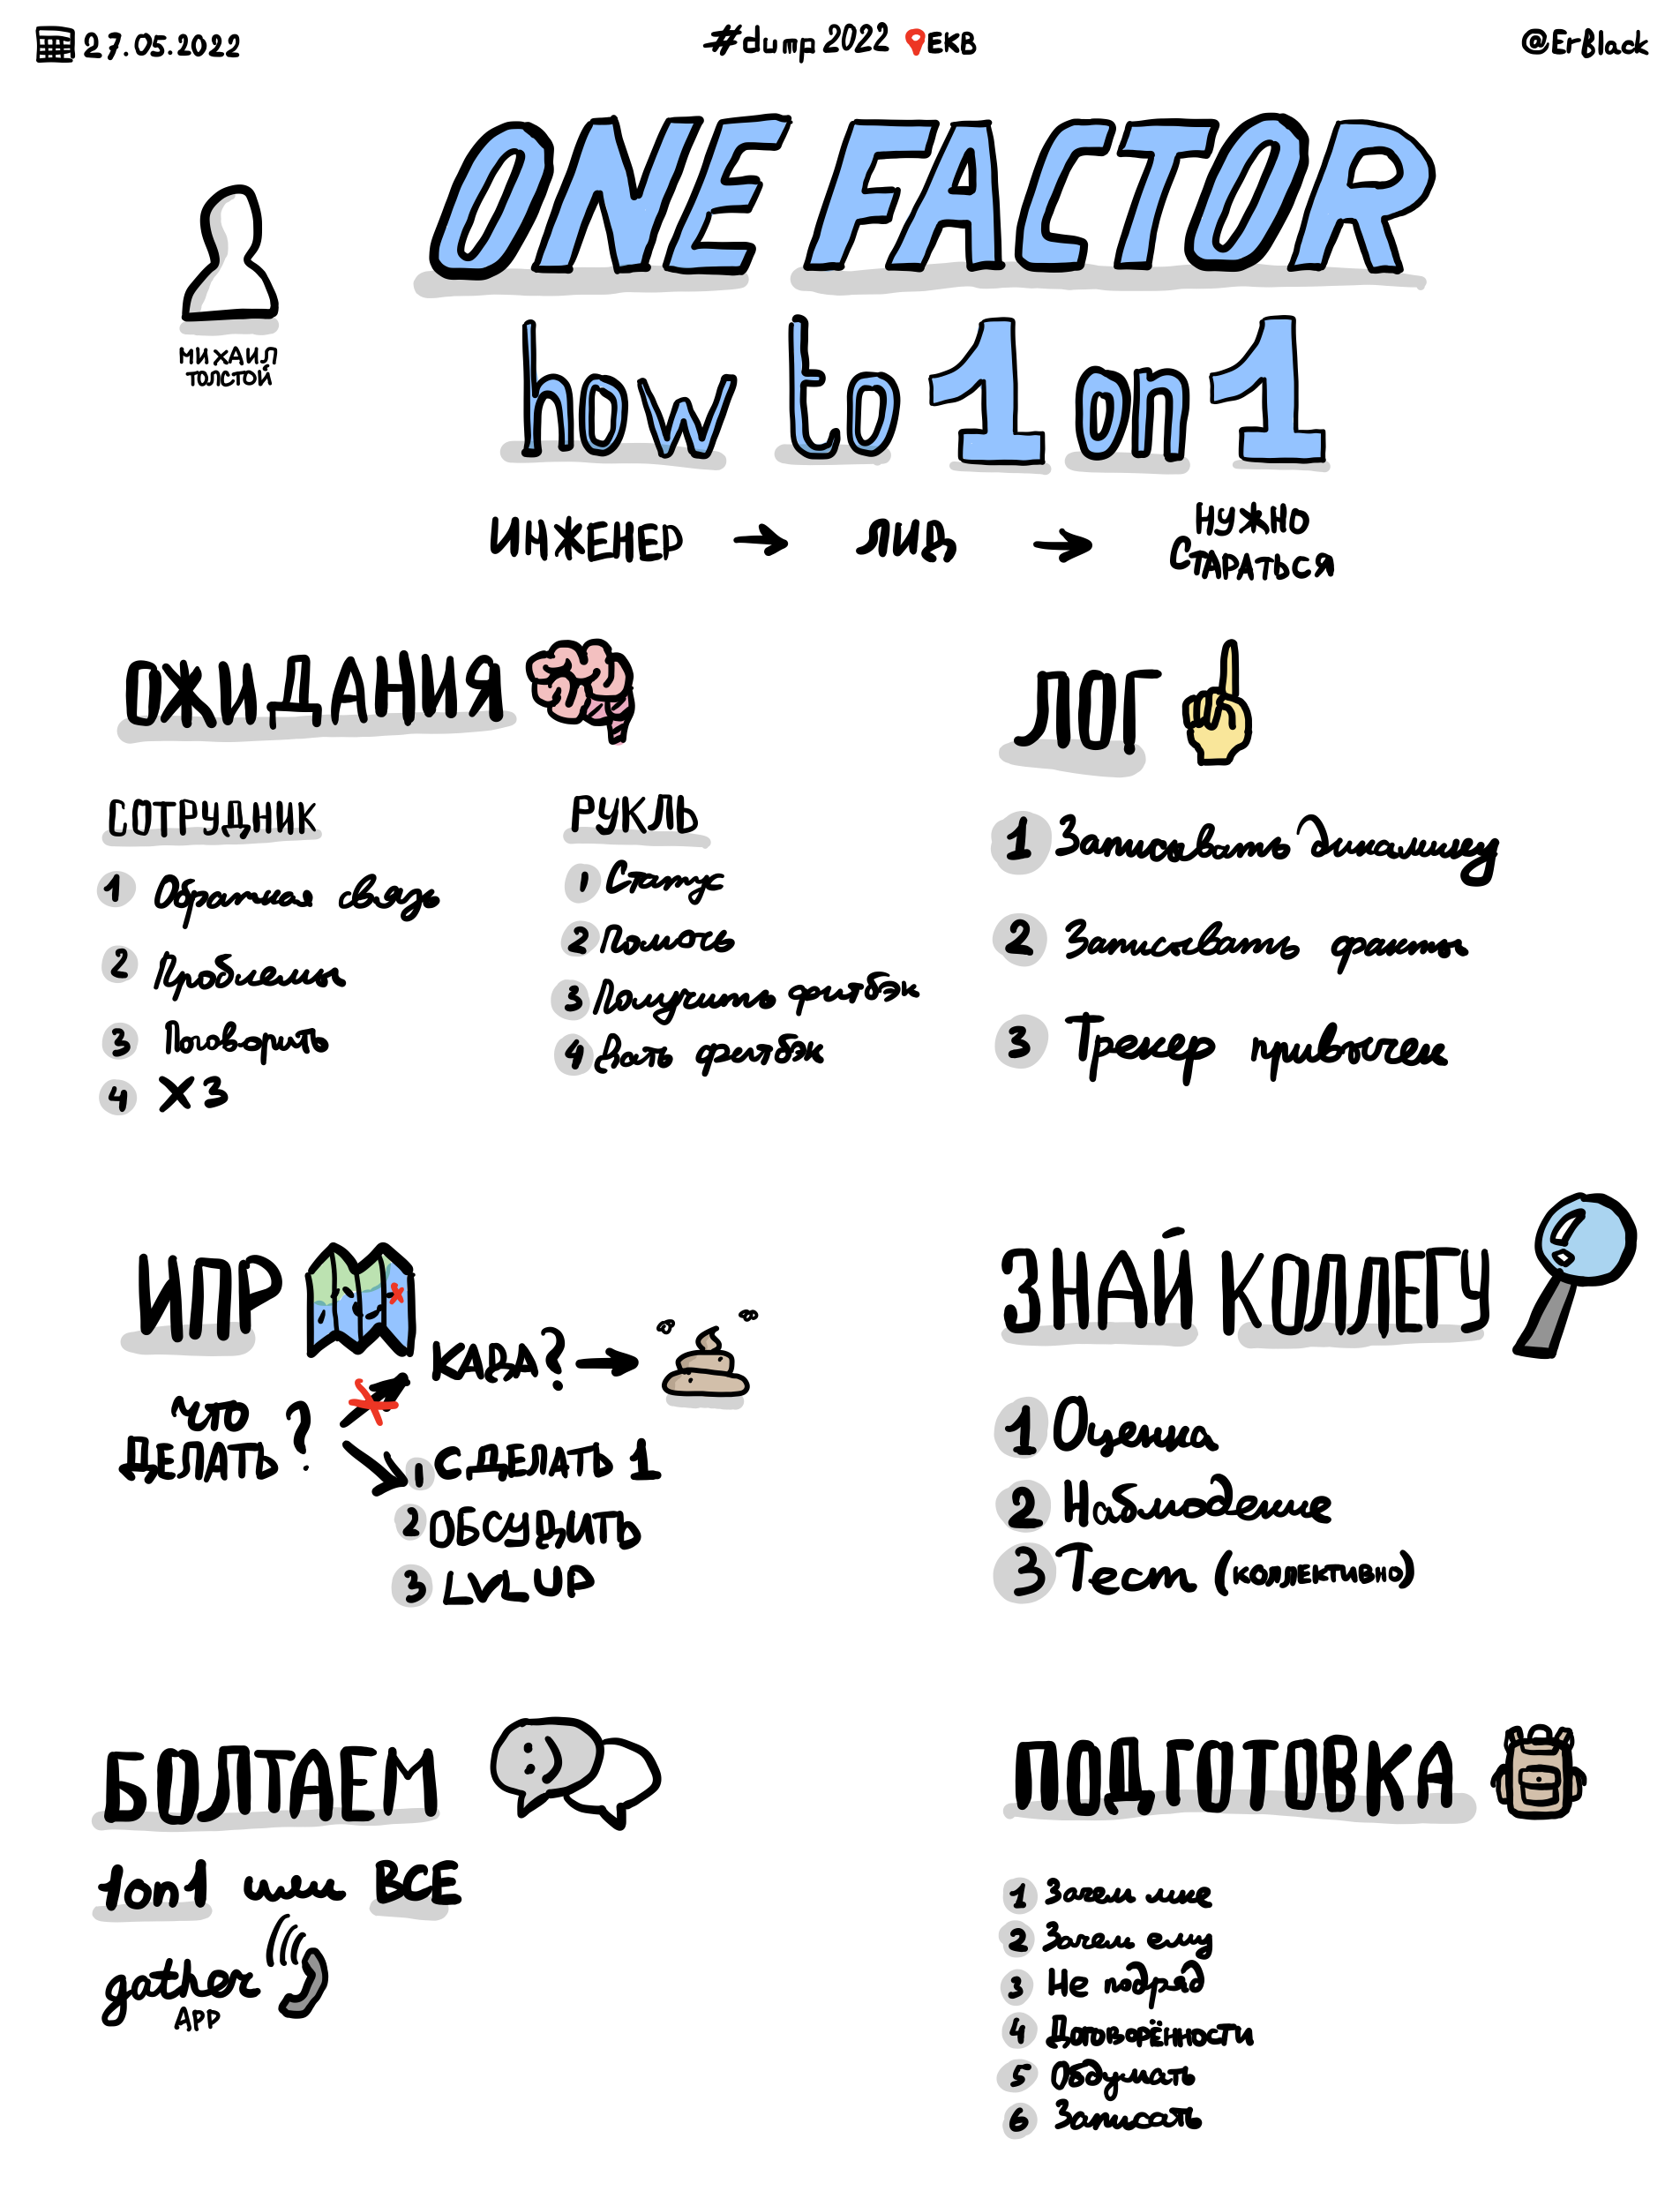 27.05.2022
#dump2022 ЕКВ
@ErBlack
ONE FACTOR
how to 1 on 1
МИХАИЛ
ТОЛСТОЙ
ИНЖЕНЕР → ЛИД → НУЖНО
СТАРАТЬСЯ
ОЖИДАНИЯ
СОТРУДНИК
1 Обратная связь
2 Проблемы
3 Поговорить
4 ХЗ
РУКЛЬ
1 Статус
2 Помочь
3 Получить фитбэк
4 Дать фитбэк
ЛОГ
1 Записывать динамику
2 Записывать факты
3 Трекер привычек
ИПР
ЧТО
ДЕЛАТЬ?
КАДА? →
1 СДЕЛАТЬ 1
2 ОБСУДИТЬ
3 LVL UP
ЗНАЙ КОЛЛЕГУ
1 Оценка
2 Наблюдение
3 Тест (КОЛЛЕКТИВНО)
БОЛТАЕМ
1on1 или ВСЕ
gather
APP
ПОДГОТОВКА
1 Зачем мне
2 Зачем ему
3 Не подряд
4 Договорённости
5 Обдумать
6 Записать